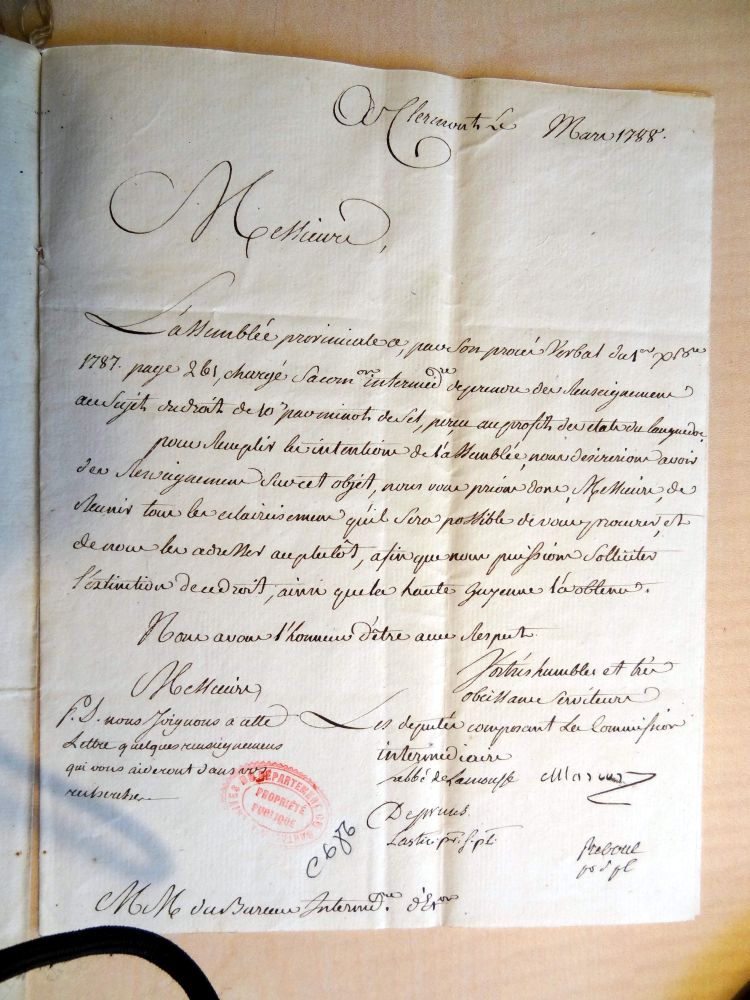 A Clermont le Mars 1788.
Messieurs,
L'assemblée provinciale a, par son procés verbal du 1er xbre
1787. page 261, chargé sa comon intermedre de prendre des Renseignemens
au Sujet du droit de 10s par minot de Sel, perçu au profit des etats du languedoc,
pour Remplir les intentions de l'assemblée, nous desirerions avoir
des Renseignemens Sur cet objet, nous vous prions donc, Messieurs, de
Reunir tous les eclaircissemens qu'il Sera possible de vous procurer, et
de nous les adresser au plutôt, afin que nous puissions Solliciter
l'extinction de ce droit, ainsi que la haute Guyenne l'a obtenu.
Nous avons l'honneur d'être avec Respect
Messieurs,
Vos très humbles et très
obeissans Serviteurs
Les deputés composant la Commission
intermédiaire
P.S. nous Joignons a cette
Lettre quelques renseignemens
qui vous aideront dans vos
recherches
l'abbé de Lamousse
DEPARTEMENT
PROPRIÉTÉ
PUBLIQUE
Reboul
MM du Bureau Intermdre